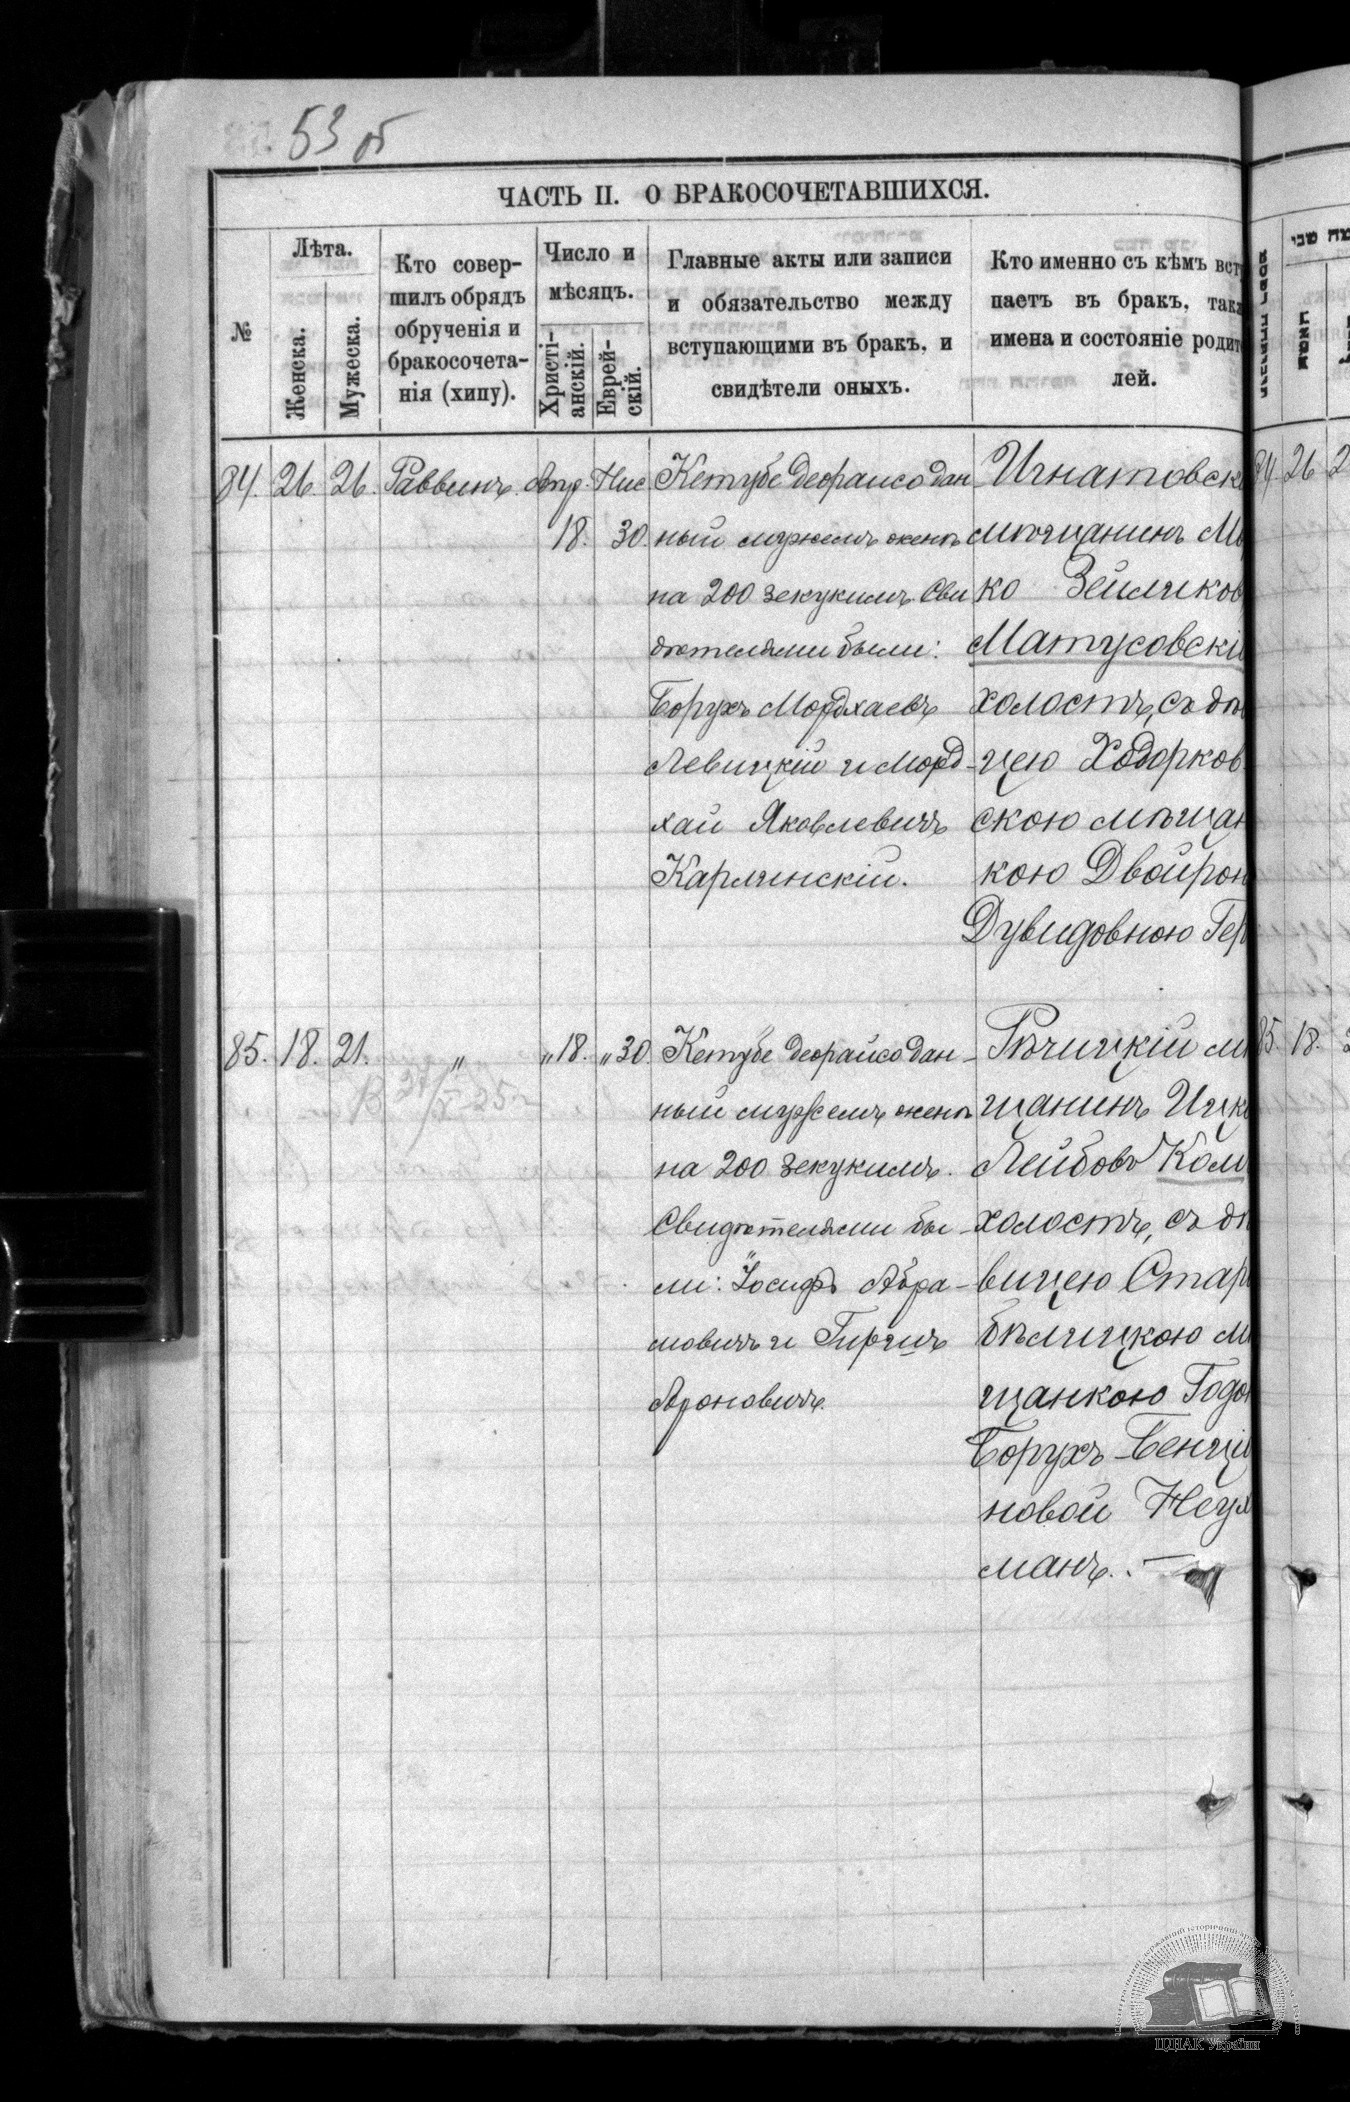 53 об
ЧАСТЬ II. О БРАКОСОЧЕТАВШИХСЯ.
№
Лѣта.
Женска.
Мужеска.
Кто совер-
шилъ обрядъ
обрученія и
бракосочета-
нія (хипу).
Число и
мѣсяцъ.
Христі-
анскій.
Еврей-
скій.
Главные акты или записи
и обязательство между
вступающими въ бракъ, и
свидѣтели оныхъ.
Кто именно съ кѣмъ всту
паетъ въ бракъ, такж
имена и состояніе родит
лей.
84. 26. 26. Раввинъ. Апр. Нис
18. 30.
Кетубе деорайсо дан-
ный мужемъ женѣ
на 200 зекукимъ. Сви
дѣтелями были:
Борухъ Мордхаевъ
Левицкій и Морд-
хай Яковлевичъ
Карлинскій.
Игнатовск
мѣщанинъ М
ко Зейликов
Матусовскі
холостъ, съ дѣ
цею Ходорков
скою мѣщан
кою Двойрою
Дувидовною Гер
85. 18. 21. „ „18. „30.
Кетубе деорайсо дан-
ный мужемъ женѣ
на 200 зекукимъ.
Свидѣтелями бы-
ли: Іосифъ Абра-
мовичъ и Гиршъ
Ароновичъ.
Рѣчицкій мѣ
щанинъ Ицк
Лейбовъ Колм
холостъ, съ дѣ
вицею Стар
бѣлицкою м
щанкою Годо
Борухъ-Бенці
новой Неух
манъ. —
84 26 2
85. 18. 2
ЦДІАК України